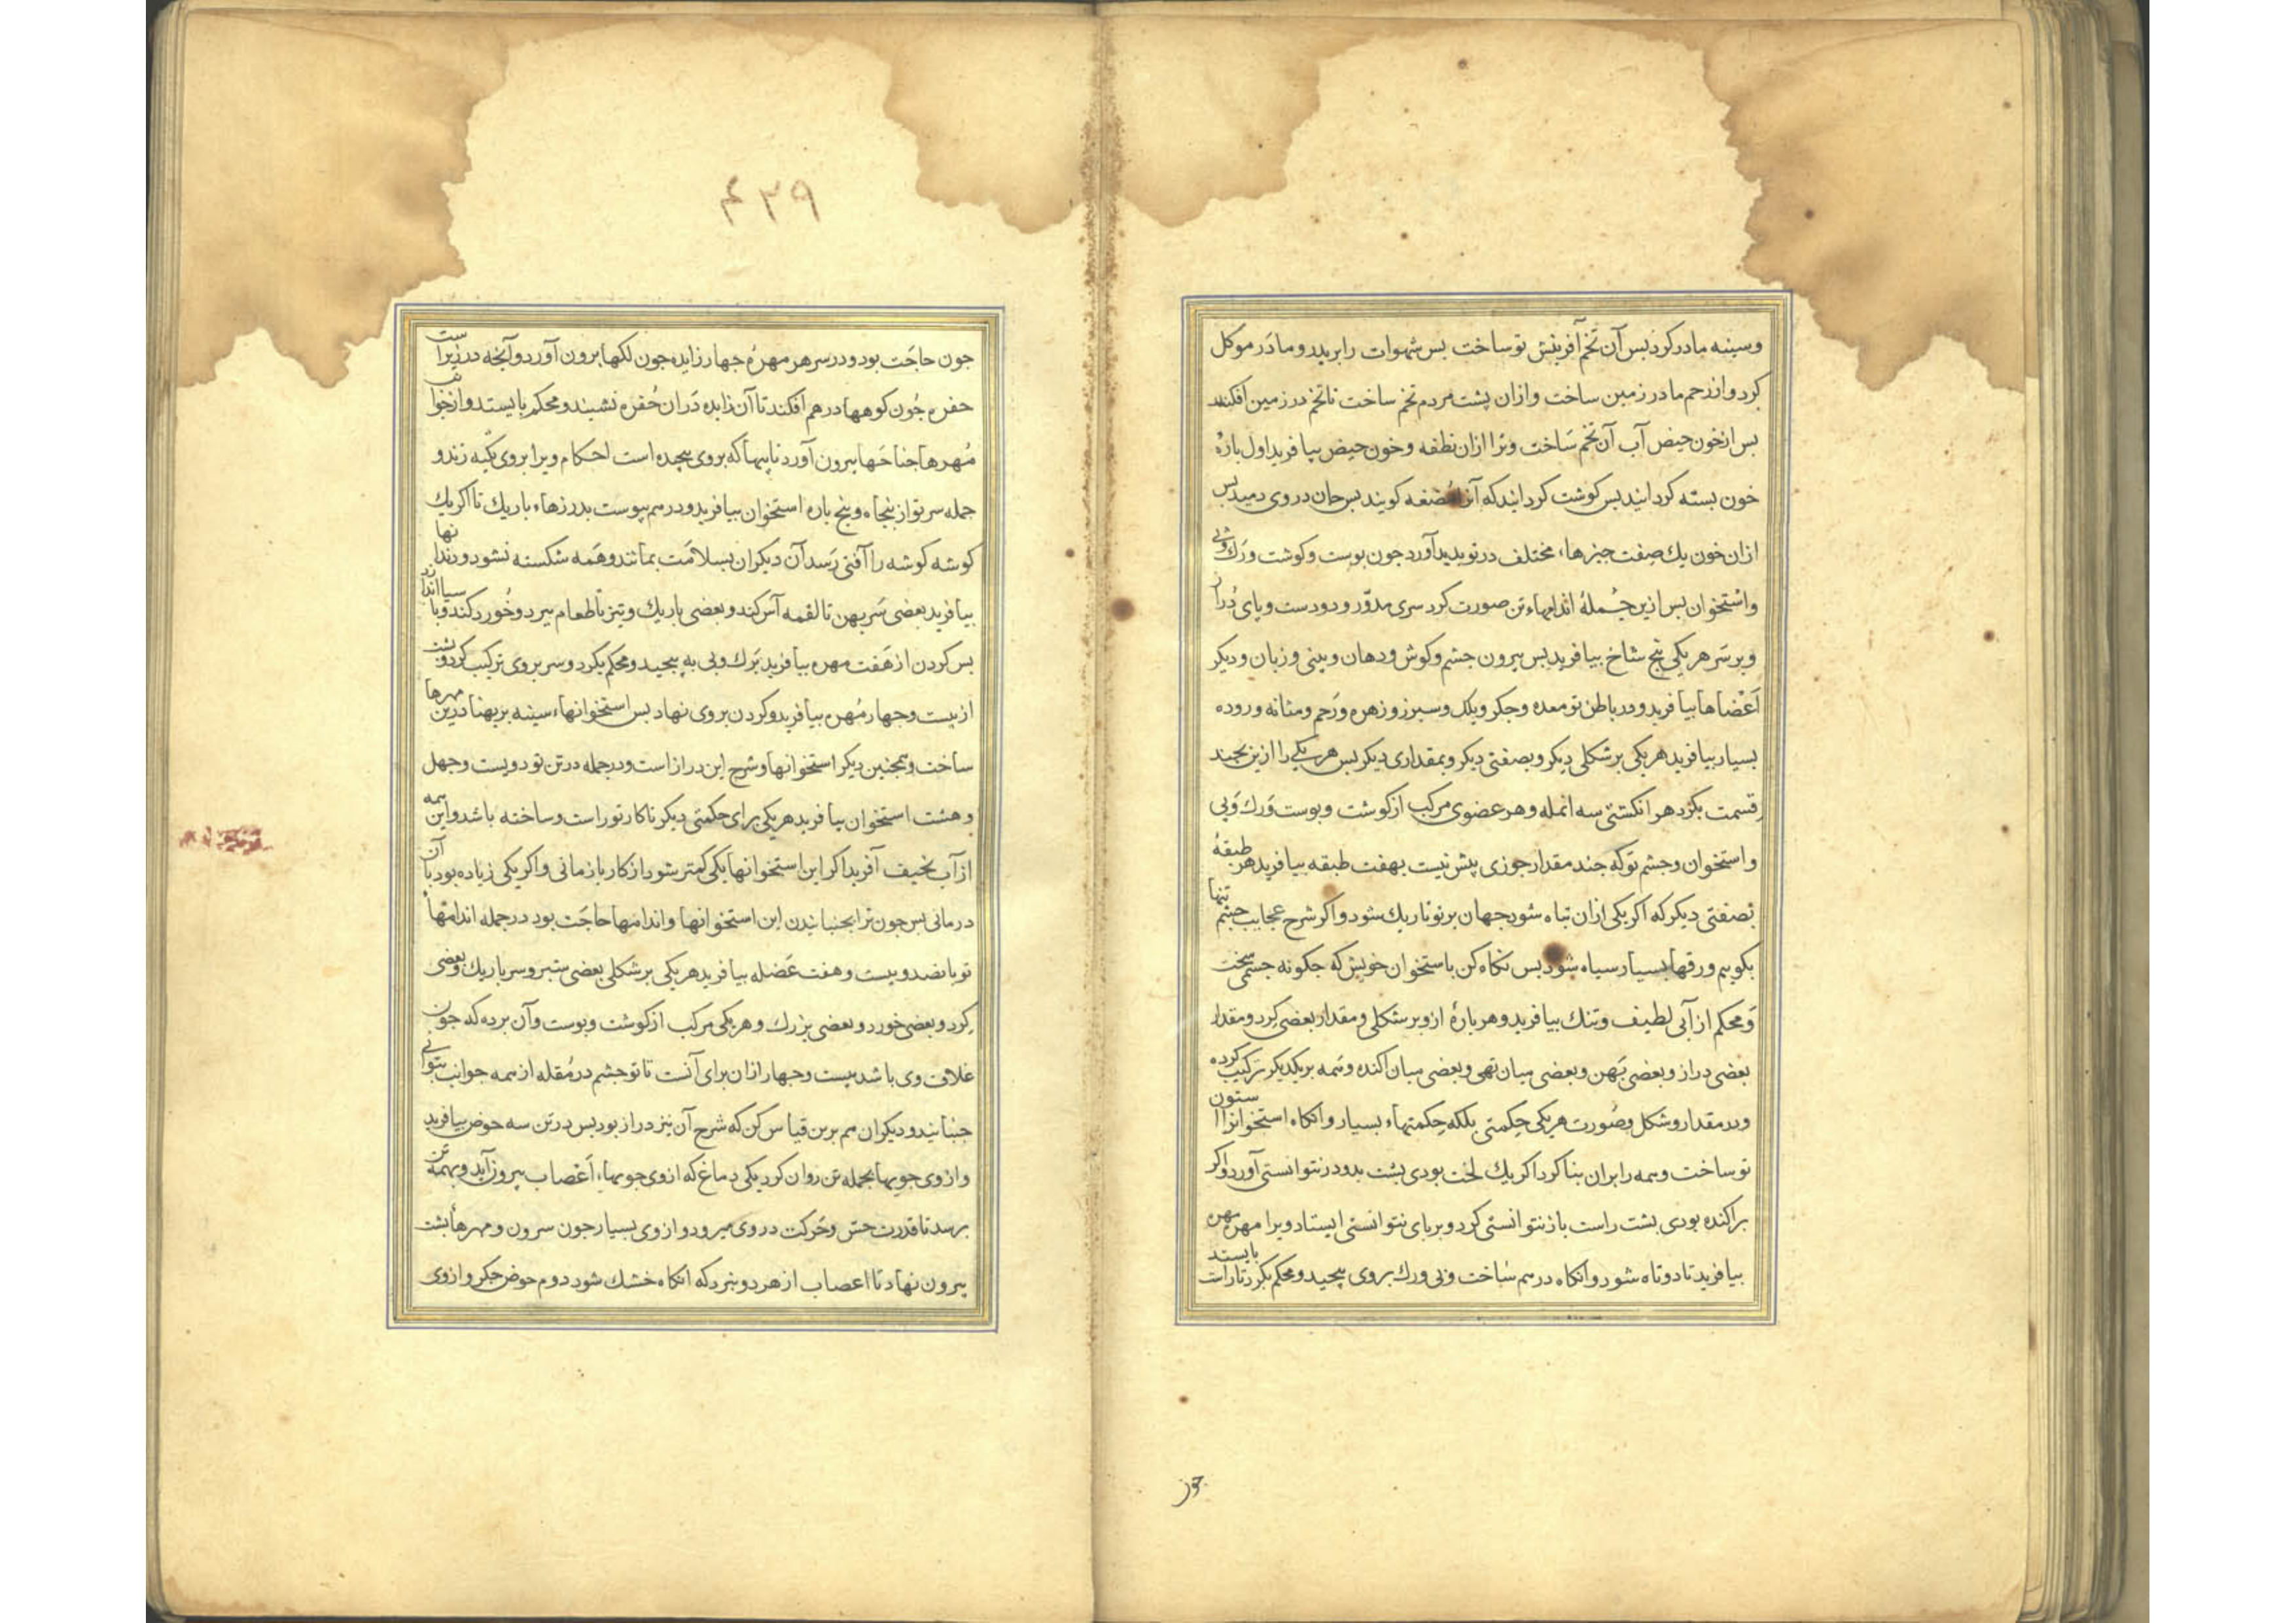 وسینه مادر کرد بس آن تخم آفرینش تو ساخت بس شهوات را برپدر و مادر موکل
کرد و از رحم مادر زمین ساخت و ازان پشت مردم تخم ساخت تا تخم در زمین افکند
بس از خون حیض آب آن تخم ساخت و ترا ازان نطفه و خون حیض بیافرید اول بارهٔ
خون بسته کردانید بس کوشت کردانید که آنرا مضغه کویند بس جان در وی دمید بس
ازان خون یك صفت جیزهاء مختلف در تو بدید آورد جون بوست و کوشت و رك و بی
و استخوان بس ازین جملهٔ اندامهاء تن صورت کرد سری مدوّر و دو دست و پای دراز
و بر سر هر یکی پنج شاخ بیافرید بس بیرون جشم و کوش و دهان و بینی و زبان و دیکر
اَعْضاها بیافرید و در باطن تو معده و جکر و کلك و سبرز و زهره و رحم و مثانه و روده
بسیار بیافرید هر یکی بر شکلی دیکر و بصفتی دیکر و بمقداری دیکر بس هر یکی را ازین بجند
قسمت بکرد هر انکشتی سه انمله و هر عضوی مرکب از کوشت و بوست و رك و بی
و استخوان و جشم تو که جند مقدار جوزی پیش نیست بهفت طبقه بیافرید هر طبقهٔ
بصفتی دیکر که اکر یکی ازان تباه شود جهان بر تو تاریك شود و اکر شرح عجایب جشم تنها
بکوییم ورقها بسیار سیاه شود بس نکاه کن باستخوان خویش که جکونه جسمی سخت
و محکم از آبی لطیف و تنك بیافرید و هر بارهٔ ازو بر شکلی و مقدار بعضی کرد و مقدار
بعضی دراز و بعضی بهن و بعضی میان تهی و بعضی میان اکنده و همه بر یکدیکر ترکیب کرده
و در مقدار و شکل و صورت هر یکی حکمتی بلکه حکمتهاء بسیار و انکاه استخوانرا ستون
تو ساخت و همه را بران بنا کرد اکر یك لخت بودی بشت بدو در نتوانستی آورد و اکر
براکنده بودی بشت راست باز نتوانستی کرد و بر بای نتوانستی ایستاد ویرا مهره مهره
بیافرید تا دوتاه شود و انکاه درهم ساخت و بی و رك بر وی بیجید و محکم بکرد تا راست بایستد
جون
۴۳۹
جون حاجت بود و در سر هر مهرهٔ جهار زایده جون لکها برون آورد و آنجه در زیر است
حفره جون کوهها درهم افکند تا آن زایده دران حفره نشیند و محکم بایستد و از جوانب
مهرها جناحها بیرون آورد تا پیها که بر وی بیجیده است احکام ویرا بر وی تکیه زند و
جمله سر تو از پنجاه و پنج باره استخوان بیافرید و درهم پیوست بدرزهاء باریك تا اکر یك
کوشه کوشه را آفتی رسد آن دیکران بسلامت بمانند و همه شکسته نشود و دندانها
بیافرید بعضی سر بهن تا لقمه آس کند و بعضی باریك و تیز تا طعام ببرد و خورد کند و باسیا اندازد
بس کردن از هفت مهره بیافرید برك و بی به پیجید و محکم بکرد و سر بر وی ترکیب کرد و بشت
از بیست و جهار مهره بیافرید و کردن بر وی نهاد بس استخوانهاء سینه بر بهنا درین مهرها
ساخت و همجنین دیکر استخوانها و شرح این دراز است و در جمله در تن تو دویست و جهل
و هشت استخوان بیافرید هر یکی برای حکمتی دیکر تا کار تو راست و ساخته باشد و این همه
از آب نحیف آفرید اکر این استخوانها یکی کمتر شود از کار باز مانی و اکر یکی زیاده بود با آن
درمانی بس جون ترا بجنبانیدن این استخوانها و اندامها حاجت بود در جمله اندامهاء
تو بانصد و بیست و هفت عضله بیافرید هر یکی بر شکلی بعضی ستبر و سر باریك و بعضی
کرد و بعضی خورد و بعضی بزرك و هر یکی مرکب از کوشت و بوست و آن برده که جون
غلاف وی باشد بیست و جهار ازان برای آنست تا تو جشم در مقله از همه جوانب بتوانی
جنبانید و دیکران هم برین قیاس کن که شرح آن نیز دراز بود بس در تن سه حوض بیافرید
و از وی جویها بجمله تن روان کرد یکی دماغ که از وی جویهاء اَعْصاب بیرون آید و بهمه تن
برسد تا قدرت حسّ و حرکت در وی میرود و از وی بسیار جون سرون و مهرهاء بشت
بیرون نهاد تا اعصاب از هر دو بنرد که انکاه خشك شود دوم حوض جکر و از وی